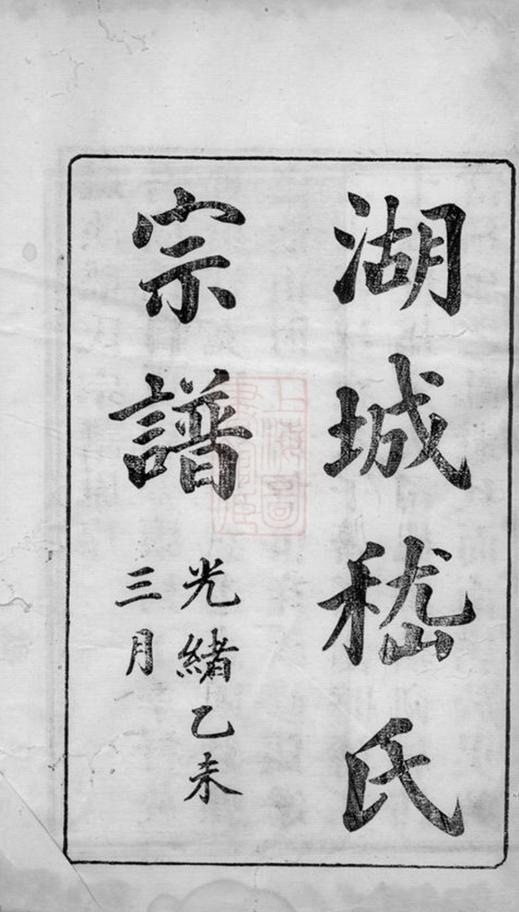 湖城嵇氏
宗譜
光緒乙未
三月